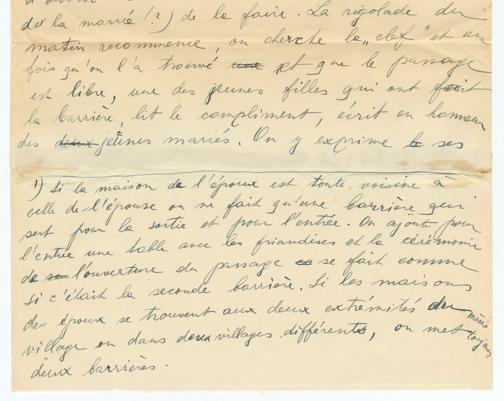 de la mariée (?) de la faire. La rigolade du
matin recommence, on cherche la „clef" et une
fois qu'on l'a trouvé et que le passage
est libre, une des jeunes filles qui ont fait
la barrière, lit le compliment, écrit en honneur
des deux jeunes mariés. On y exprime ses
1) Si la maison de l'époux est toute voisine à
celle de l'épouse on ne fait qu'une barrière qui
sert pour la sortie et pour l'entrée. On ajoute pour
l'entrée une table avec les friandises et la cérémonie
de l'ouverture du passage se fait comme
si c'était la seconde barrière. Si les maisons
des époux se trouvent aux deux extrémités du même
village ou dans deux villages différents, on met toujours
deux barrières.